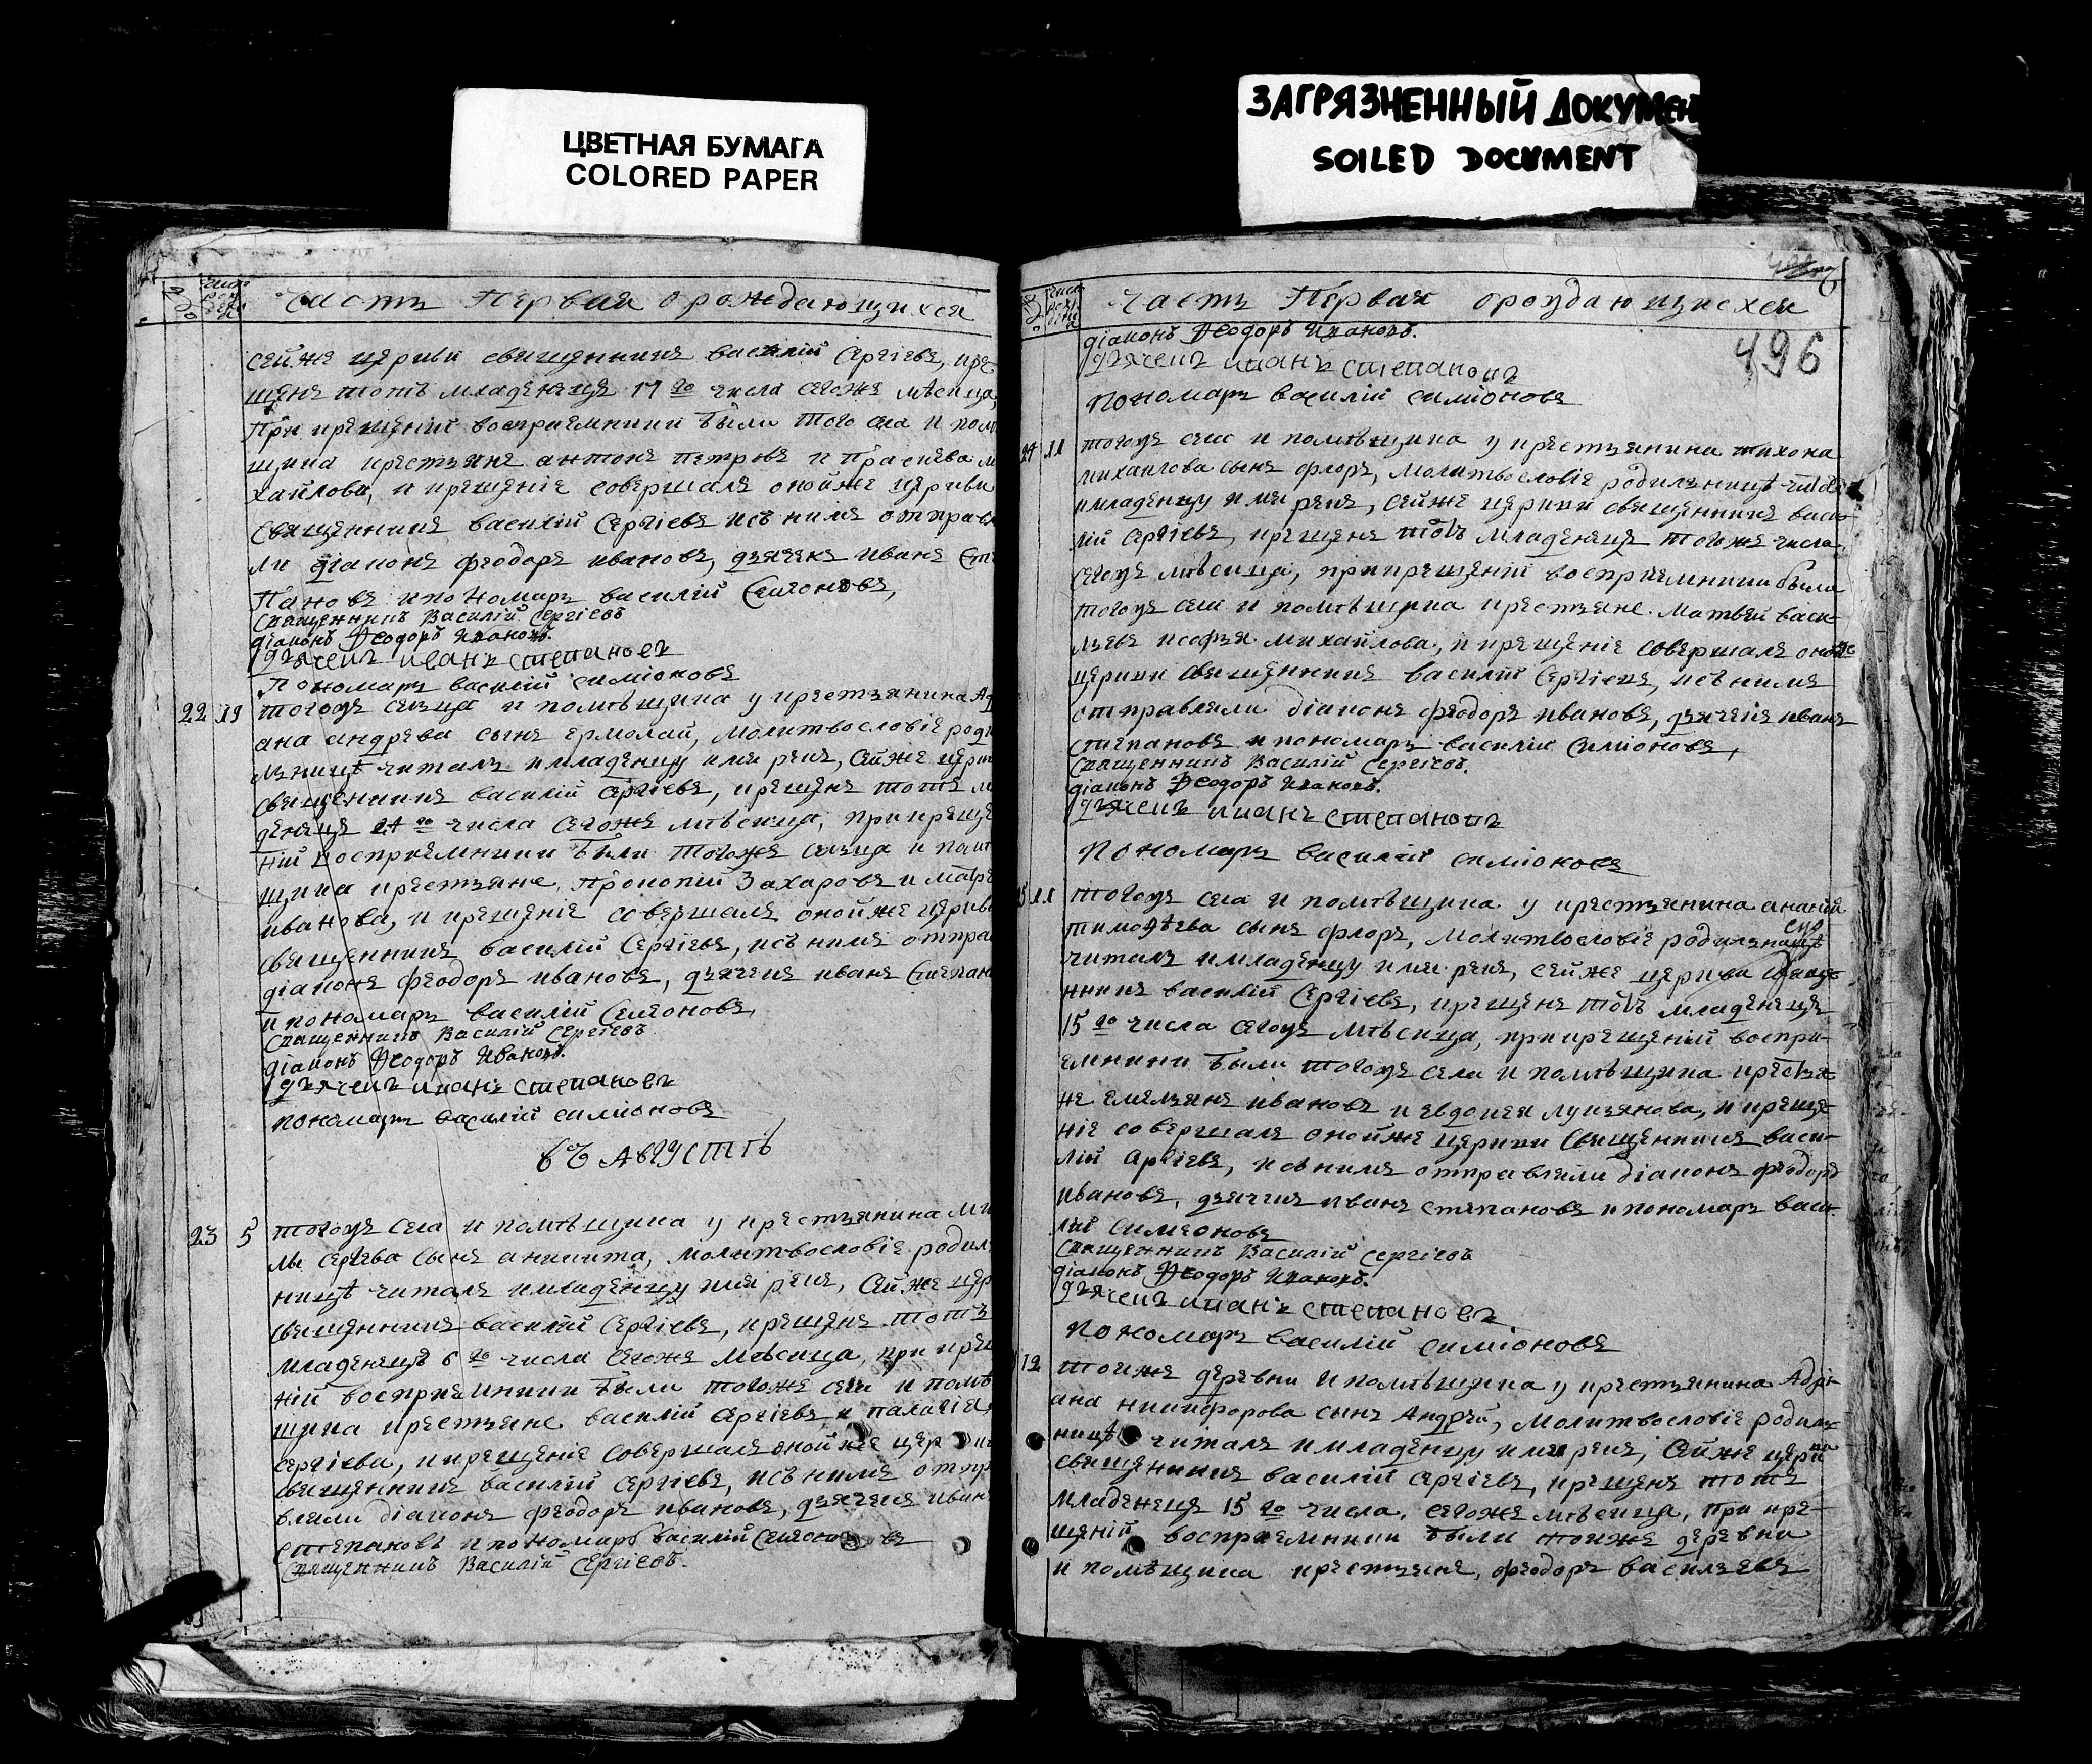 ЦВЕТНАЯ БУМАГА
COLORED PAPER
ЗАГРЯЗНЕННЫЙ ДОКУМЕН
SOILED DOCUMENT
Часть Первая о рождающихся
сейже церкви священникъ василій Сергіевъ, кре-
щенъ тотъ младенецъ 17 го числа сегоже мѣсяца,
При крещеніи восприемники были того села и помѣ
щика крестьяне антонъ петровъ и Праскева ми
хаилова, и крещеніе совершалъ онойже церкви
Священникъ василій Сергіевъ исъ нимъ отправля
ли діаконъ феодоръ ивановъ, дьячекъ иванъ Сте
пановъ и пономарь василій Симеоновъ,
Священникъ Василій Сергіевъ
діаконъ Ѳеодоръ Ивановъ.
дьячекъ иванъ степановъ
Пономарь василій симіоновъ
22 19 тогожъ сельца и помѣщика у крестьянина Адр
ана андреева сынъ ермолай, молитвословіе роди
льницѣ читалъ и младенцу имя рекъ, сейже церкви
священникъ василій сергіевъ, крещенъ тотъ мла
денецъ 24 го числа сегоже мѣсяца, при креще
ніи восприемники были тогоже сельца и помѣ
щика крестьяне, Прокопій Захаровъ и матре
иванова, и крещеніе совершалъ онойже церкви
священникъ василій Сергіевъ, исъ нимъ отправ
діаконъ феодоръ ивановъ, дьячекъ иванъ Степан
и пономарь василій Симеоновъ,
Священникъ Василій Сергіевъ.
діаконъ Ѳеодоръ Ивановъ.
дьячекъ иванъ степановъ
пономарь василій симіоновъ
въ августѣ
23 5 тогожъ села и помѣщика у крестьянина Ми
лы сергѣева сынъ аникита, молитвословіе родиль
ницѣ читалъ и младенцу имя рекъ, сейже цер
священникъ василій Сергіевъ, крещенъ тотъ
младенецъ 6 го числа сегоже мѣсяца, при кре
ніи восприемники были тогоже села и помѣ
щика крестьяне василій Сергіевъ и палагія
сергіева, и крещеніе совершалъ онойже церкви
священникъ василій Сергіевъ, исъ нимъ отпр
вляли діаконъ феодоръ ивановъ, дьячекъ иван
степановъ и пономарь василій Симеоновъ
Священникъ Василій Сергіевъ.
Часть Первая о рождающихся
496
діаконъ Ѳеодоръ Ивановъ.
дьячекъ иванъ степановъ
пономарь василій симіоновъ
24 11 тогожъ села и помѣщика у крестьянина тихона
михаилова сынъ флоръ, молитвословіе родильницѣ читалъ
и младенцу имя рекъ, сейже церкви священникъ васи-
лій Сергіевъ, крещенъ тотъ младенецъ тогоже числа
сегожъ мѣсяца, при крещеніи восприемники были
тогожъ села и помѣщика крестьяне. Матвей васи-
льевъ и софья михайлова, и крещеніе совершалъ онойже
церкви священникъ василій Сергіевъ, исъ нимъ
отправляли діаконъ феодоръ ивановъ, дьячекъ иванъ
степановъ и пономарь василій Симіоновъ,
Священникъ Василій Сергіевъ.
діаконъ Ѳеодоръ Ивановъ.
дьячекъ иванъ степановъ
пономарь василій симіоновъ
5 11 тогожъ села и помѣщика у крестьянина ананіи
тимоѳеева сынъ флоръ, молитвословіе родильницѣ
читалъ и младенцу имя рекъ, сейже церкви священ-
никъ василій Сергіевъ, крещенъ тотъ младенецъ
15 го числа сегожъ мѣсяца, при крещеніи воспри-
емники были тогожъ села и помѣщика крестья-
не емельянъ ивановъ и евдокея лукьянова, и креще-
ніе совершалъ онойже церкви Священникъ васи-
лій Сергіевъ, исъ нимъ отправляли діаконъ феодоръ
ивановъ, дьячекъ иванъ степановъ и пономарь васи-
лій симеоновъ
Священникъ Василій Сергіевъ
діаконъ Ѳеодоръ Ивановъ.
дьячекъ иванъ степановъ
пономарь василій симіоновъ
12 тоиже деревни и помѣщика у крестьянина Адрі-
ана никифорова сынъ Андрей, молитвословіе родиль-
ницѣ читалъ и младенцу имя рекъ, сейже церкви
священникъ василій сергіевъ, крещенъ тотъ
младенецъ 15 го числа, сегоже мѣсяца, при кре-
щеніи восприемники были тоиже деревни
и помѣщика крестьяне, феодоръ васильевъ